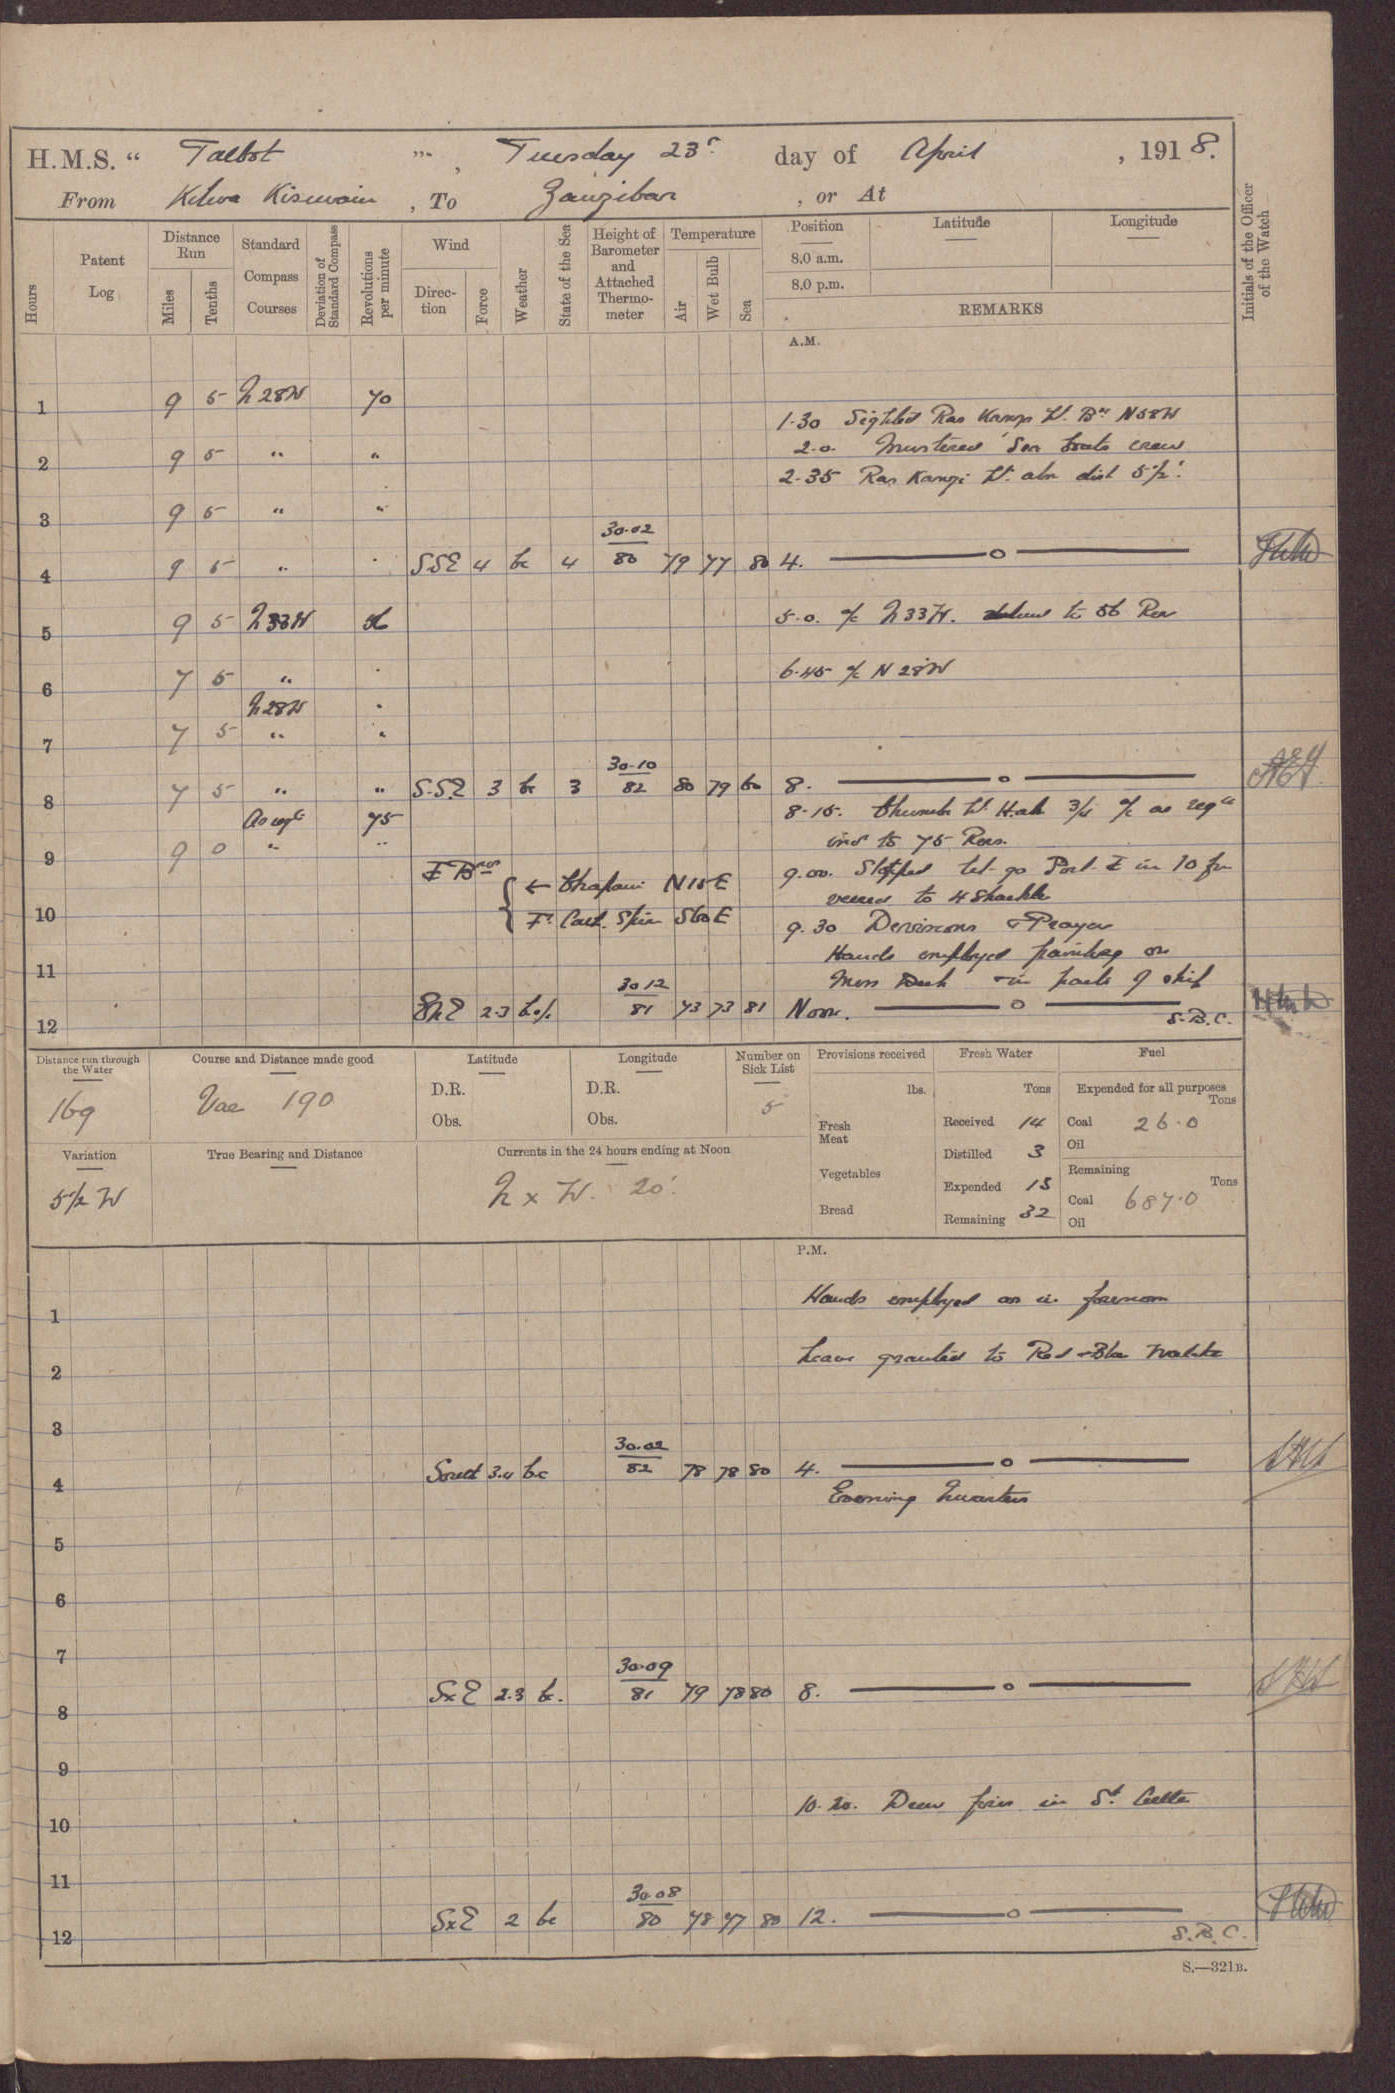 H.M.S. " Talbot ", Tuesday 23rd day of April, 1918.
From Kilwa Kisiwani, To Zanzibar, or At
Hours Patent Log Distance Run Miles Tenths Standard Compass Courses Deviation of Standard Compass Revolutions per minute Wind Direction Force Weather State of the Sea Height of Barometer and Attached Thermometer Temperature Air Wet Bulb Sea Position 8.0 a.m. 8.0 p.m. Latitude Longitude REMARKS Initials of the Officer of the Watch
A.M.
1 9 5 N28W 70
1.30 Sighted Ras Lt. Bg N58W
2 9 5 " " 2.0. Mustered Sea boats crew
2.35 Ras Lt. abm dist 5½'.
3 9 5 " "
4 9 5 " " SSE 4 bc 4 30.02 80 79 77 80 4.
5 9 5 N33W 56 5.0. a/c N33W. to 56 Rev
6 7 5 " " 6.45 a/c N28W
N28W "
7 7 5 " "
8 7 5 " " S.S.E 3 bc 3 30.10 82 80 79 80 8.
As reqd 75 8.15. Lt. H. abm 3/4 a/c as reqd
incd to 75 Revs.
9 9 0 " "
9.00. Stopped let go Port in 10 fm
veered to 4 Shackle
N15E
S60E
10 9.30 Divisions & Prayer
Hands employed painting on
11 Mess Deck & in parts of ship
12 2.3 30.12 81 73 73 81 Noon.
S.B.C.
Distance run through the Water 169
Course and Distance made good Var 190
Latitude D.R. Obs.
Longitude D.R. Obs.
Number on Sick List 5
Provisions received lbs. Fresh Meat Vegetables Bread
Fresh Water Tons Received 14 Distilled 3 Expended 15 Remaining 32
Fuel Expended for all purposes Tons Coal 26.0 Oil Remaining Tons Coal 687.0 Oil
Variation 5½ W
True Bearing and Distance
Currents in the 24 hours ending at Noon N x W. 20'.
P.M.
1 Hands employed as in forenoon
2 Leave granted to Red & Blue Watch
3
4 South 3.4 bc 30.02 82 78 78 80 4.
Evening Quarters
5
6
7
8 SxE 2.3 bc. 30.09 81 79 78 80 8.
9
10 10.20. Drew fires in
11
12 SxE 2 bc 30.08 80 78 77 80 12.
S.B.C.
S.—321B.